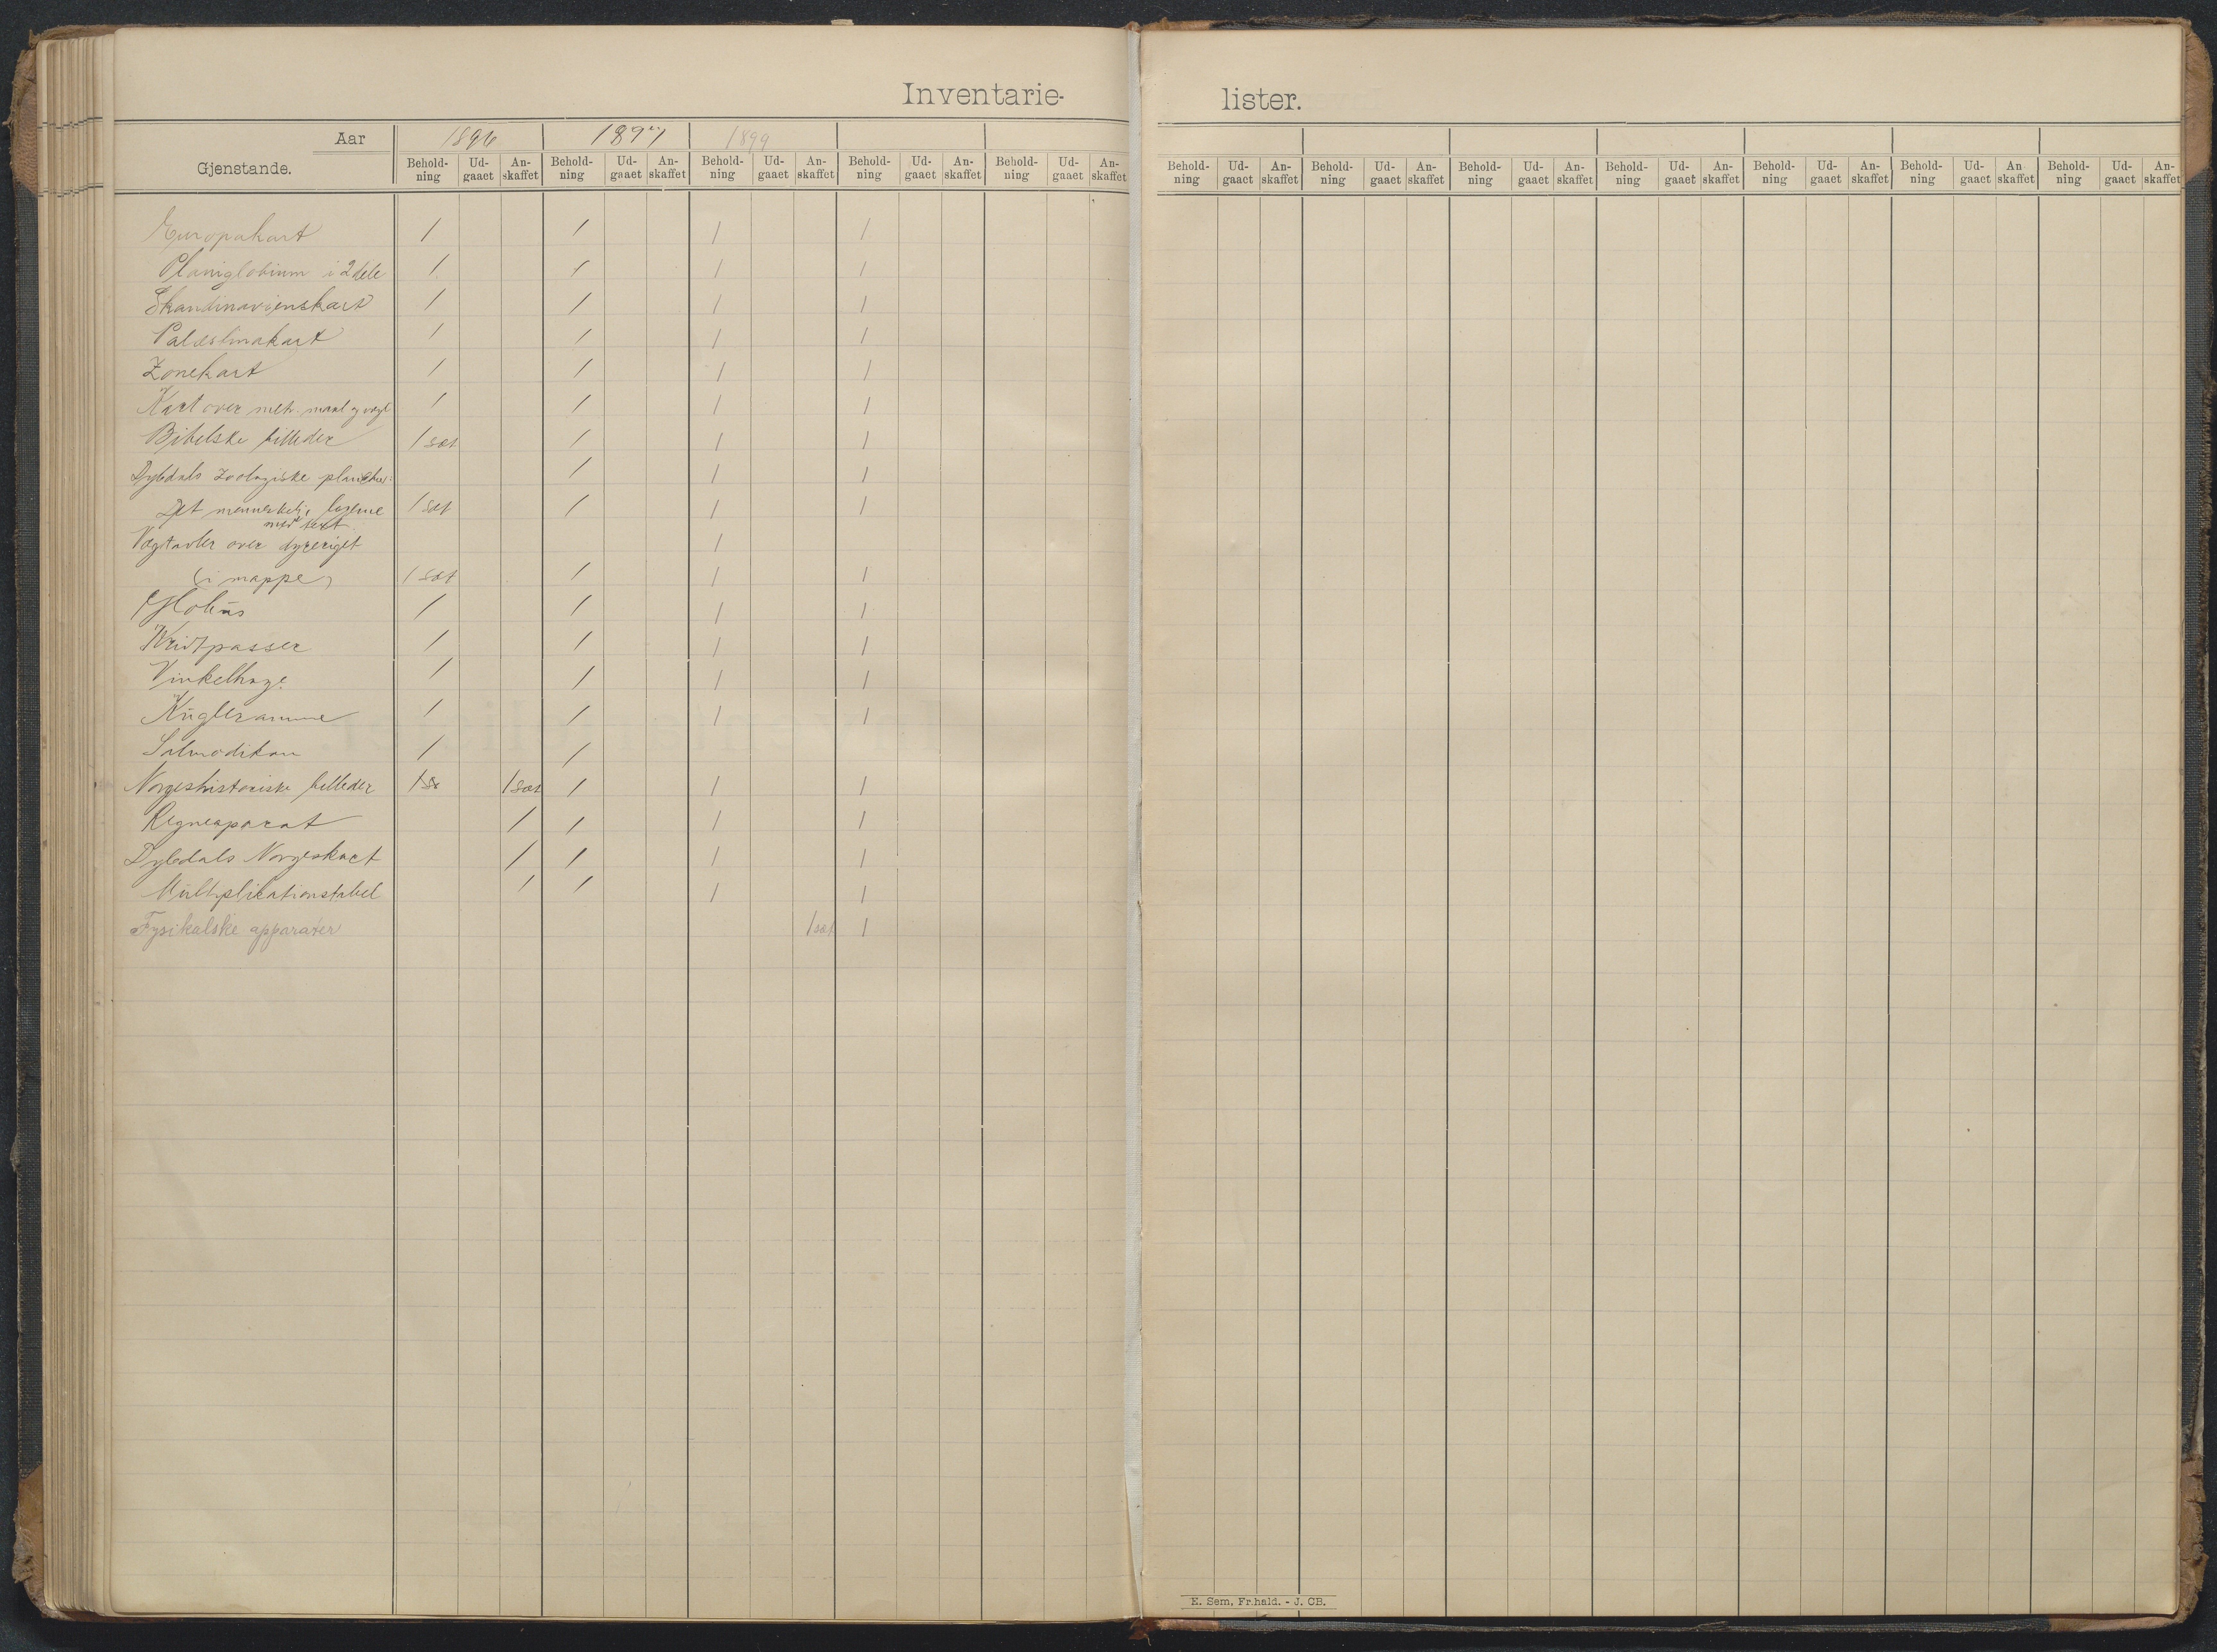 Inventarie-
lister.
Aar 1896 1897 1899
Gjenstande. Behold-ning Ud-gaaet An-skaffet Behold-ning Ud-gaaet An-skaffet Behold-ning Ud-gaaet An-skaffet Behold-ning Ud-gaaet An-skaffet Behold-ning Ud-gaaet An-skaffet
Behold-ning Ud-gaaet An-skaffet Behold-ning Ud-gaaet An-skaffet Behold-ning Ud-gaaet An-skaffet Behold-ning Ud-gaaet An-skaffet Behold-ning Ud-gaaet An-skaffet Behold-ning Ud-gaaet An-skaffet Behold-ning Ud-gaaet An-skaffet
Europakart 1 1 1 1
Planiglobium i 2 dele 1 1 1 1
Skandinavienskart 1 1 1 1
Palæstinakart 1 1 1 1
Zonekart 1 1 1 1
Kart over metr. maal og vegt 1 1 1 1
Bibelske billeder 1 sæt 1 1 1
Dybdals zoologiske plancher 1 1 1
Det menneskelige legeme 1 sæt 1 1 1
med text
Vægtavler over dyreriget 1
(i mappe) 1 sæt 1 1 1
Globus 1 1 1 1
Kridtpasser 1 1 1 1
Vinkelhage 1 1 1 1
Kugleramme 1 1 1 1
Salmodikon 1 1
Norgeshistoriske billeder 1 s 1 sæt 1 1 1
Regneaparat 1 1 1 1
Dybdals Norgeskart 1 1 1 1
Multiplikationstabel 1 1 1 1
Fysikalske apparater 1 sæt 1
E. Sem, Fr.hald. - J. CB.